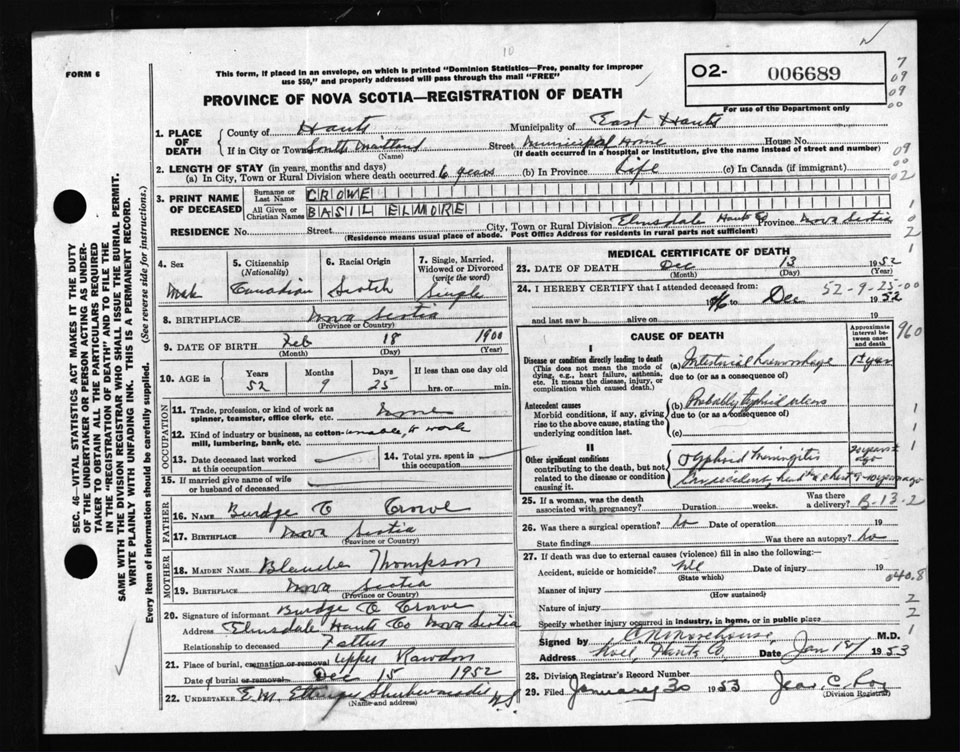 10
FORM 6
This form, if placed in an envelope, on which is printed "Dominion Statistics—Free, penalty for improper
use $50," and properly addressed will pass through the mail "FREE"
O2- 006689
For use of the Department only
PROVINCE OF NOVA SCOTIA—REGISTRATION OF DEATH
1. PLACE OF DEATH
County of Hants Municipality of East Hants
If in City or Town South Maitland Street Municipal Home House No.
(Name) (If death occurred in a hospital or institution, give the name instead of street and number)
2. LENGTH OF STAY (in years, months and days)
(a) In City, Town or Rural Division where death occurred 6 years (b) In Province Life (c) In Canada (if immigrant)
3. PRINT NAME OF DECEASED
Surname or Last Name CROWE
All Given or Christian Names BASIL ELMORE
RESIDENCE No. Street City, Town or Rural Division Elmsdale Hants Co Province Nova Scotia
(Residence means usual place of abode. Post Office Address for residents in rural parts not sufficient)
4. Sex Male
5. Citizenship (Nationality) Canadian
6. Racial Origin Scotch
7. Single, Married, Widowed or Divorced (write the word) Single
8. BIRTHPLACE Nova Scotia
(Province or Country)
9. DATE OF BIRTH Feb 18 1900
(Month) (Day) (Year)
10. AGE in Years 52 Months 9 Days 25 If less than one day old hrs. or min.
OCCUPATION
11. Trade, profession, or kind of work as spinner, teamster, office clerk. etc. none
12. Kind of industry or business, as cotton mill, lumbering, bank, etc. unable to work
13. Date deceased last worked at this occupation
14. Total yrs. spent in this occupation
15. If married give name of wife or husband of deceased
FATHER
16. NAME Burdge C Crowe
17. BIRTHPLACE Nova Scotia
(Province or Country)
MOTHER
18. MAIDEN NAME Blanche Thompson
19. BIRTHPLACE Nova Scotia
(Province or Country)
20. Signature of informant Burdge C Crowe
Address Elmsdale Hants Co Nova Scotia
Relationship to deceased Father
21. Place of burial, cremation or removal Upper Rawdon
Date of burial or removal Dec 15 1952
22. UNDERTAKER E.M. Ettinger Shubenacadie N.S.
(Name and address)
MEDICAL CERTIFICATE OF DEATH
23. DATE OF DEATH Dec 13 1952
(Month) (Day) (Year)
24. I HEREBY CERTIFY that I attended deceased from: 52-9-25-00
1946 to Dec 1952
and last saw h alive on
CAUSE OF DEATH
Approximate interval between onset and death
960
I
Disease or condition directly leading to death (a) Intestinal haemorhage
(This does not mean the mode of dying, e.g., heart failure, asthenia, etc. It means the disease, injury, or complication which caused death.)
due to (or as a consequence of)
Antecedent causes (b) Probably typhoid ulcers
Morbid conditions, if any, giving rise to the above cause, stating the underlying condition last.
due to (or as a consequence of)
(c)
II
Other significant conditions
contributing to the death, but not related to the disease or condition causing it.
Typhoid meningitis 30 years ago
25. If a woman, was the death associated with pregnancy? Duration weeks. Was there a delivery? B-13-2
26. Was there a surgical operation? No Date of operation 19
State findings Was there an autopsy? No
27. If death was due to external causes (violence) fill in also the following:—
Accident, suicide or homicide? Date of injury 19
(State which)
040.8
Manner of injury
(How sustained)
Nature of injury
Specify whether injury occurred in industry, in home, or in public place
Signed by C N Morehouse, M.D.
Address Noel, Hants Co, Date Jan 1953
28. Division Registrar's Record Number
29. Filed January 30 1953 Jean C. Roy
(Division Registrar)
SEC. 46—VITAL STATISTICS ACT MAKES IT THE DUTY
OF THE UNDERTAKER OR PERSON ACTING AS UNDER-
TAKER TO OBTAIN ALL THE PARTICULARS REQUIRED
IN THE "REGISTRATION OF DEATH" AND TO FILE THE
SAME WITH THE DIVISION REGISTRAR WHO SHALL ISSUE THE BURIAL PERMIT.
WRITE PLAINLY WITH UNFADING INK. THIS IS A PERMANENT RECORD.
Every item of information should be carefully supplied. (See reverse side for instructions.)
7
09
09
00
09
00
02
1
0
2
1
1
1
2
2
1